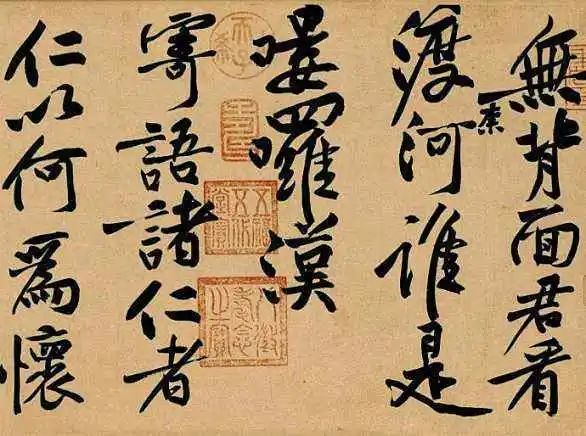 無背面君看
渡河誰是
嘍囉漢
寄語諸仁者
仁以何爲懷